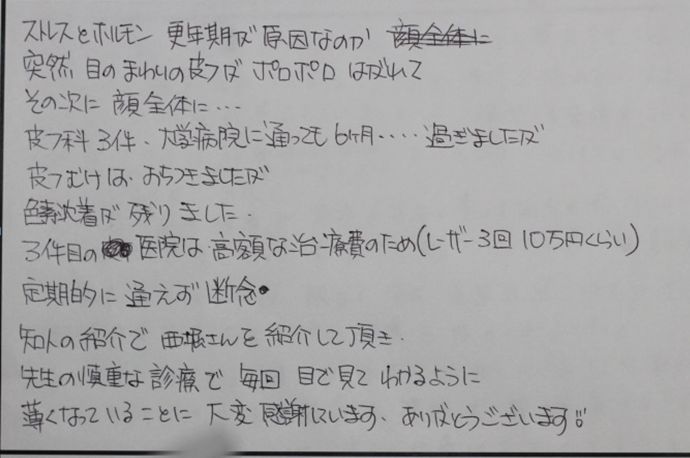 ストレスとホルモン 更年期が原因なのか 顔全体に
突然 目のまわりの皮フが ボロボロ はがれて
その次に 顔全体に…
皮フ科3件、大学病院に通っても 6ヶ月‥‥過ぎましたが
皮フむけは おちつきましたが
色素沈着が 残りました.
3件目の 医院は 高額な治療費のため(レーザー3回 10万円くらい)
定期的に 通えず 断念.
知人の紹介で 西堀さんを 紹介して頂き.
先生の慎重な診療で 毎回 目で見て わかるように
薄くなっていることに 大変 感謝しています、ありがとうございます!!